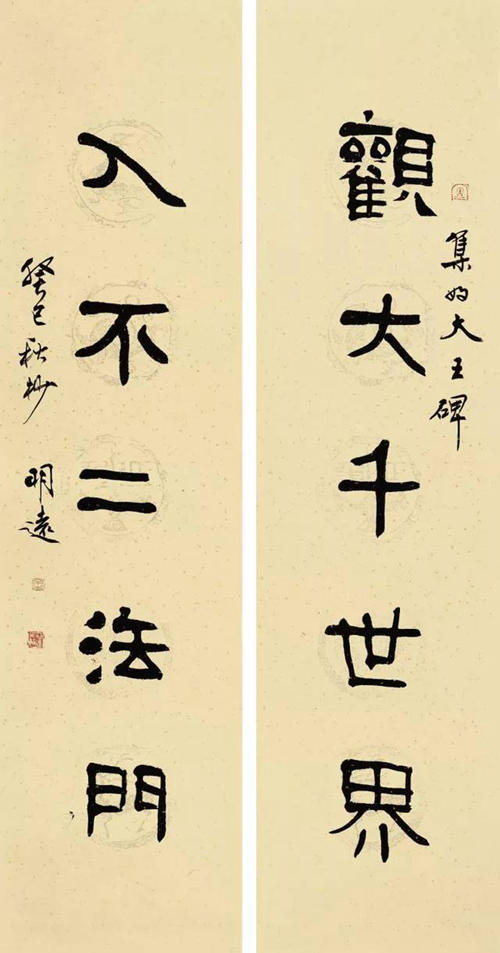 集好大王碑
觀大千世界
入不二法門
癸巳秋杪 明遠